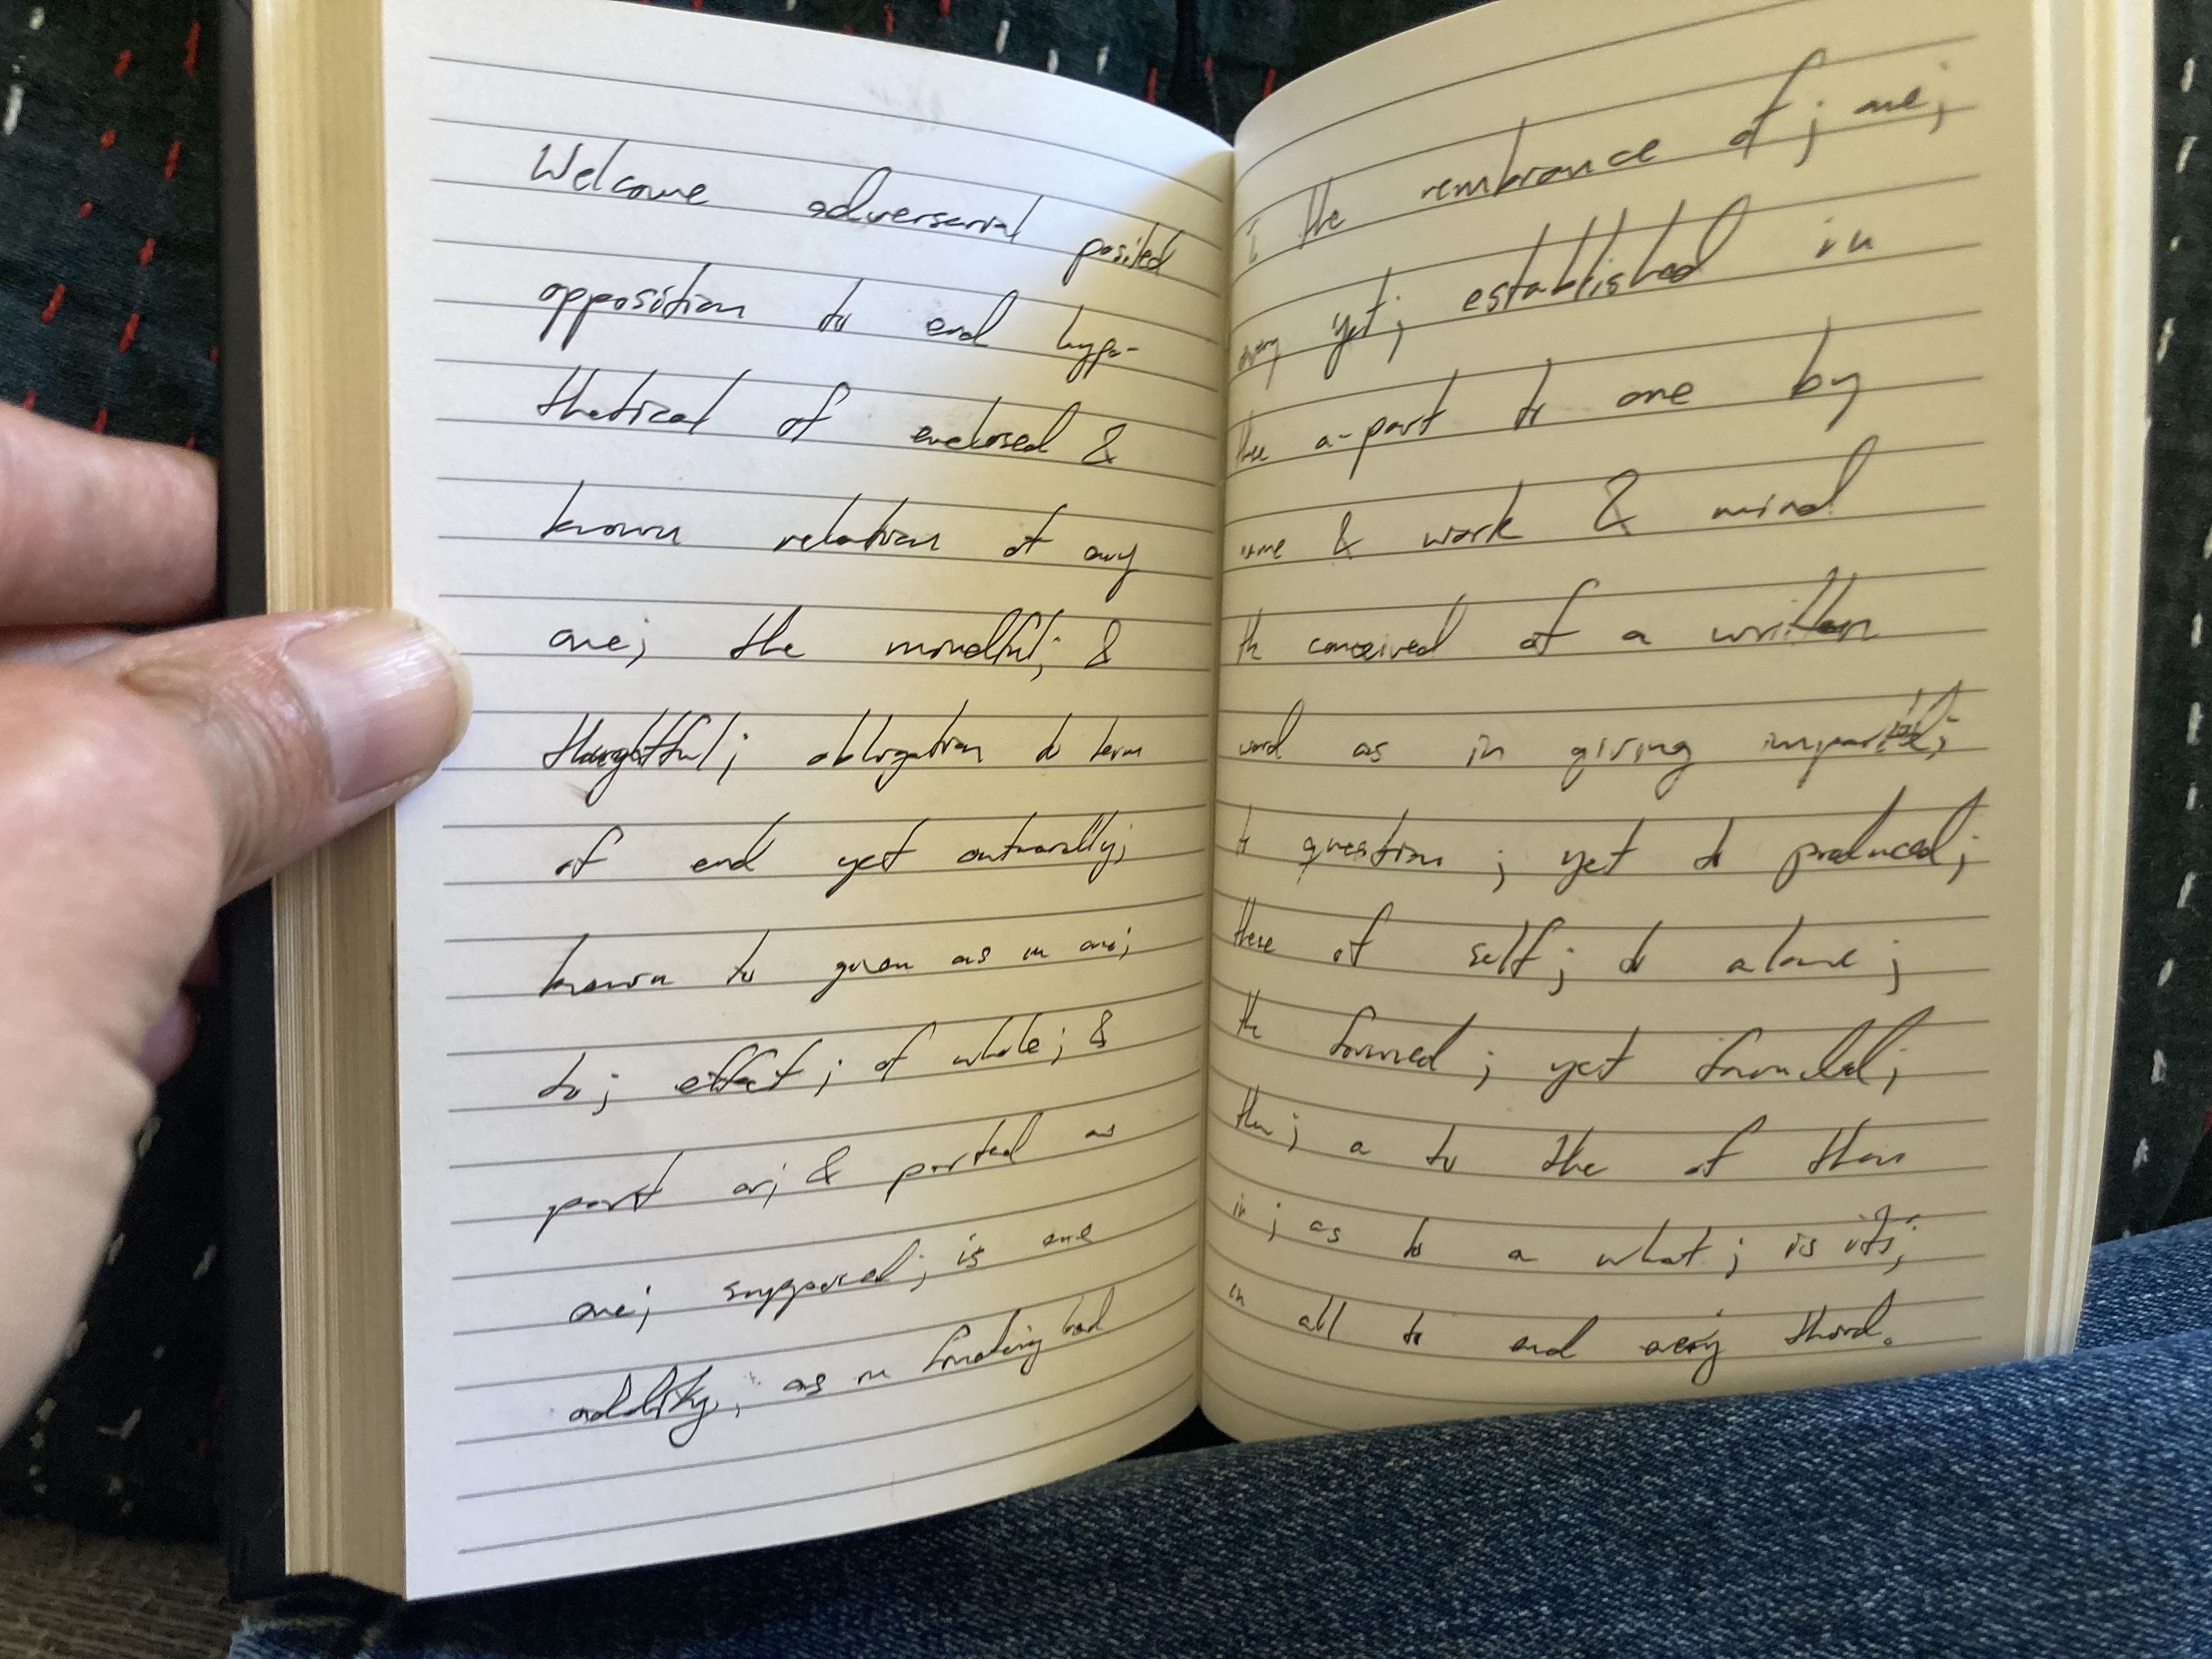 Welcome adversarial posited
opposition to end hypo-
thetical of enclosed &
known relation of any
one; the mindful; &
thoughtful; obligation to term
of end yet outwardly;
known to given as in one;
to; effect; of whole; &
part or; & parted as
one; supposed; is one
oddity; as in finding had
the rembrance of; one;
yet; established in
these a-part to one by
name & work & mind
th conceived of a written
word as in giving impartial;
to question; yet to produced;
these of self; to alone;
th formed; yet founded;
the; a to the of then
in; as to a what; is its;
in all to end every third.